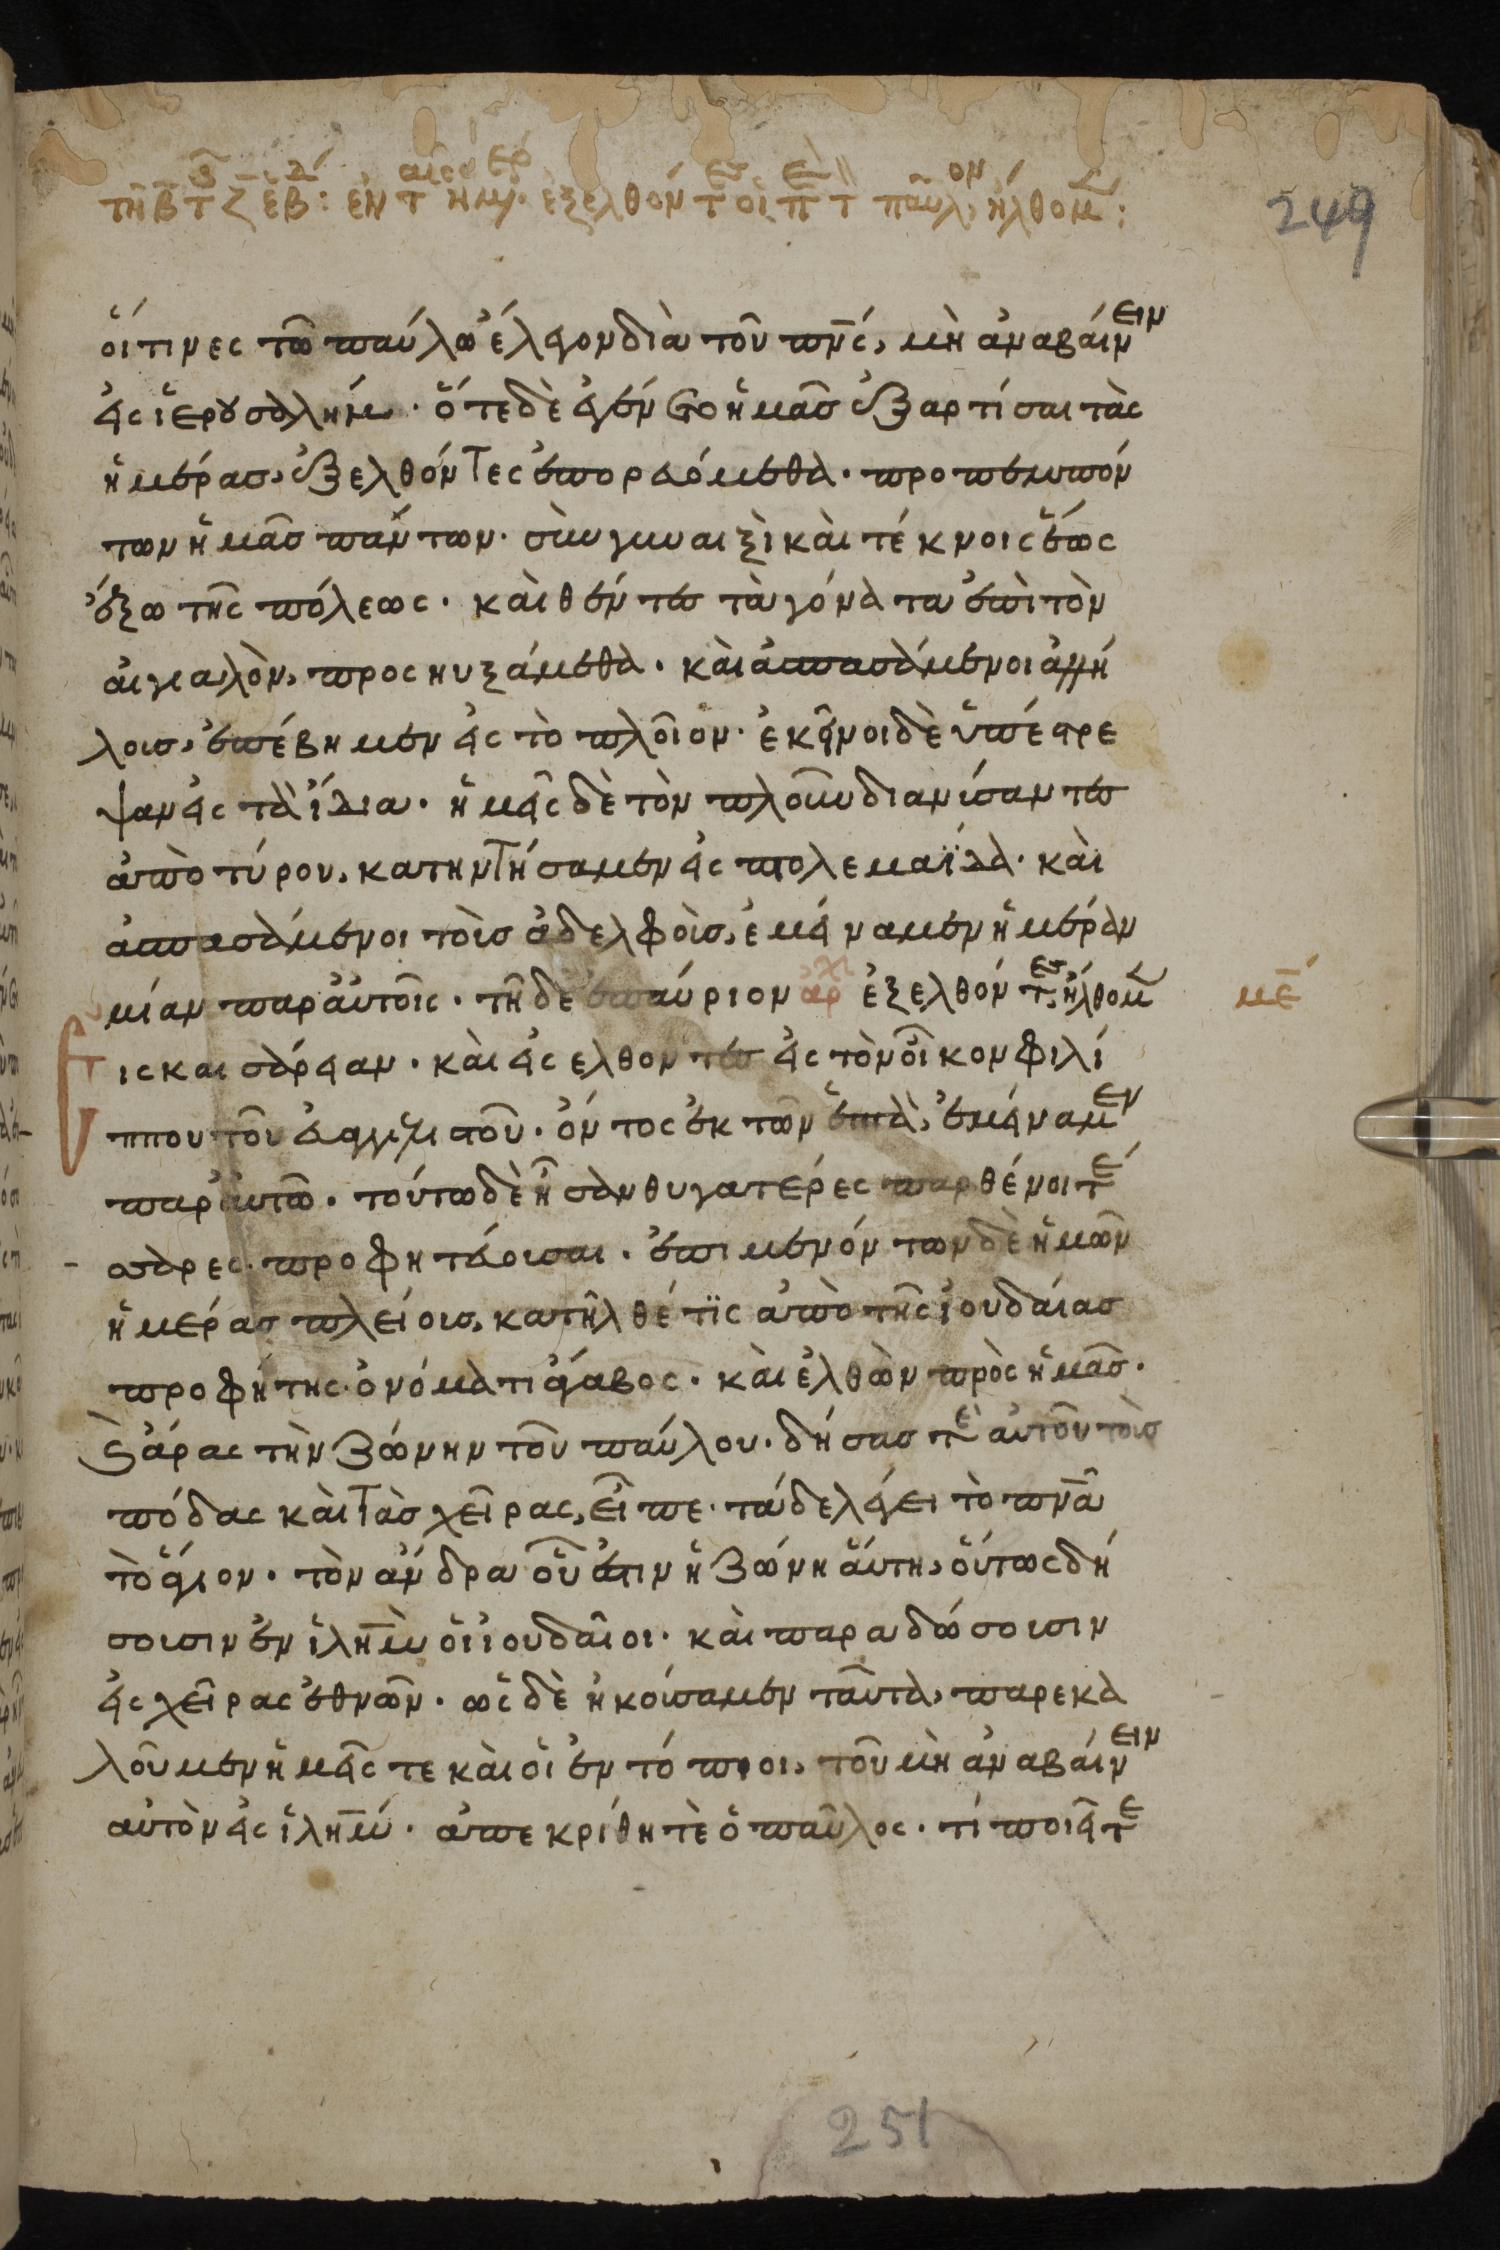 τῇ β τ ζ εβ: ἐν τ ημ. ἐξελθόντες οἱ π τ παῦλον ἤλθομ:
249
οἵτινες τῶ παύλω ἔλεγον διὰ τοῦ πνς, μὴ ἀναβαίνειν
εἰς ἱερουσαλήμ. ὅτε δὲ ἐγένετο ἡμᾶς ἐξαρτίσαι τὰς
ἡμέρας, ἐξελθόντες ἐπορευόμεθα. προπεμπόν
των ἡμᾶς πάντων. σὺν γυναιξὶ καὶ τέκνοις ἕως
ἔξω τῆς πόλεως. καὶ θέντες τὰ γόνατα ἐπὶ τὸν
αἰγιαλὸν, προσηυξάμεθα. καὶ ἀσπασάμενοι ἀλλή
λους, ἐπέβημεν εἰς τὸ πλοῖον. ἐκεῖνοι δὲ ὑπέστρε
ψαν εἰς τὰ ἴδια. ἡμεῖς δὲ τὸν πλοῦν διανύσαντες
ἀπὸ τύρου, κατηντήσαμεν εἰς πτολεμαΐδα. καὶ
ἀσπασάμενοι τοὺς ἀδελφοὺς, ἐμείναμεν ἡμέραν
μίαν παρ αὐτοῖς. τῇ δὲ ἐπαύριον αρχ ἐξελθόντες ἤλθομ
με
εἰς καισάρειαν. καὶ εἰσελθόντες εἰς τὸν οἶκον φιλί
ππου τοῦ εὐαγγελιστοῦ. ὄντος ἐκ τῶν ἑπτὰ, ἐμείναμεν
παρ αὐτῶ. τούτω δὲ ἦσαν θυγατέρες παρθένοι τέ
σσαρες προφητεύουσαι. ἐπιμενόντων δὲ ἡμῶν
ἡμέρας πλείους, κατῆλθέ τις ἀπὸ τῆς ἰουδαίας
προφήτης ὀνόματι ἄγαβος. καὶ ἐλθὼν πρὸς ἡμᾶς.
καὶ ἄρας τὴν ζώνην τοῦ παύλου. δήσας τὲ αὐτοῦ τοὺς
πόδας καὶ τὰς χεῖρας, εἶπε. τάδε λέγει τὸ πνα
τὸ ἅγιον. τὸν ἄνδρα οὗ ἐστιν ἡ ζώνη αὕτη, οὕτως δή
σουσιν ἐν ιλημ οἱ ἰουδαῖοι. καὶ παραδώσουσιν
εἰς χεῖρας ἐθνῶν. ὡς δὲ ἠκούσαμεν ταῦτα, παρεκα
λοῦμεν ἡμεῖς τε καὶ οἱ ἐντόπιοι, τοῦ μὴ ἀναβαίνειν
αὐτὸν εἰς ιλημ. ἀπεκρίθη τὲ ὁ παῦλος. τί ποιεῖτε
251